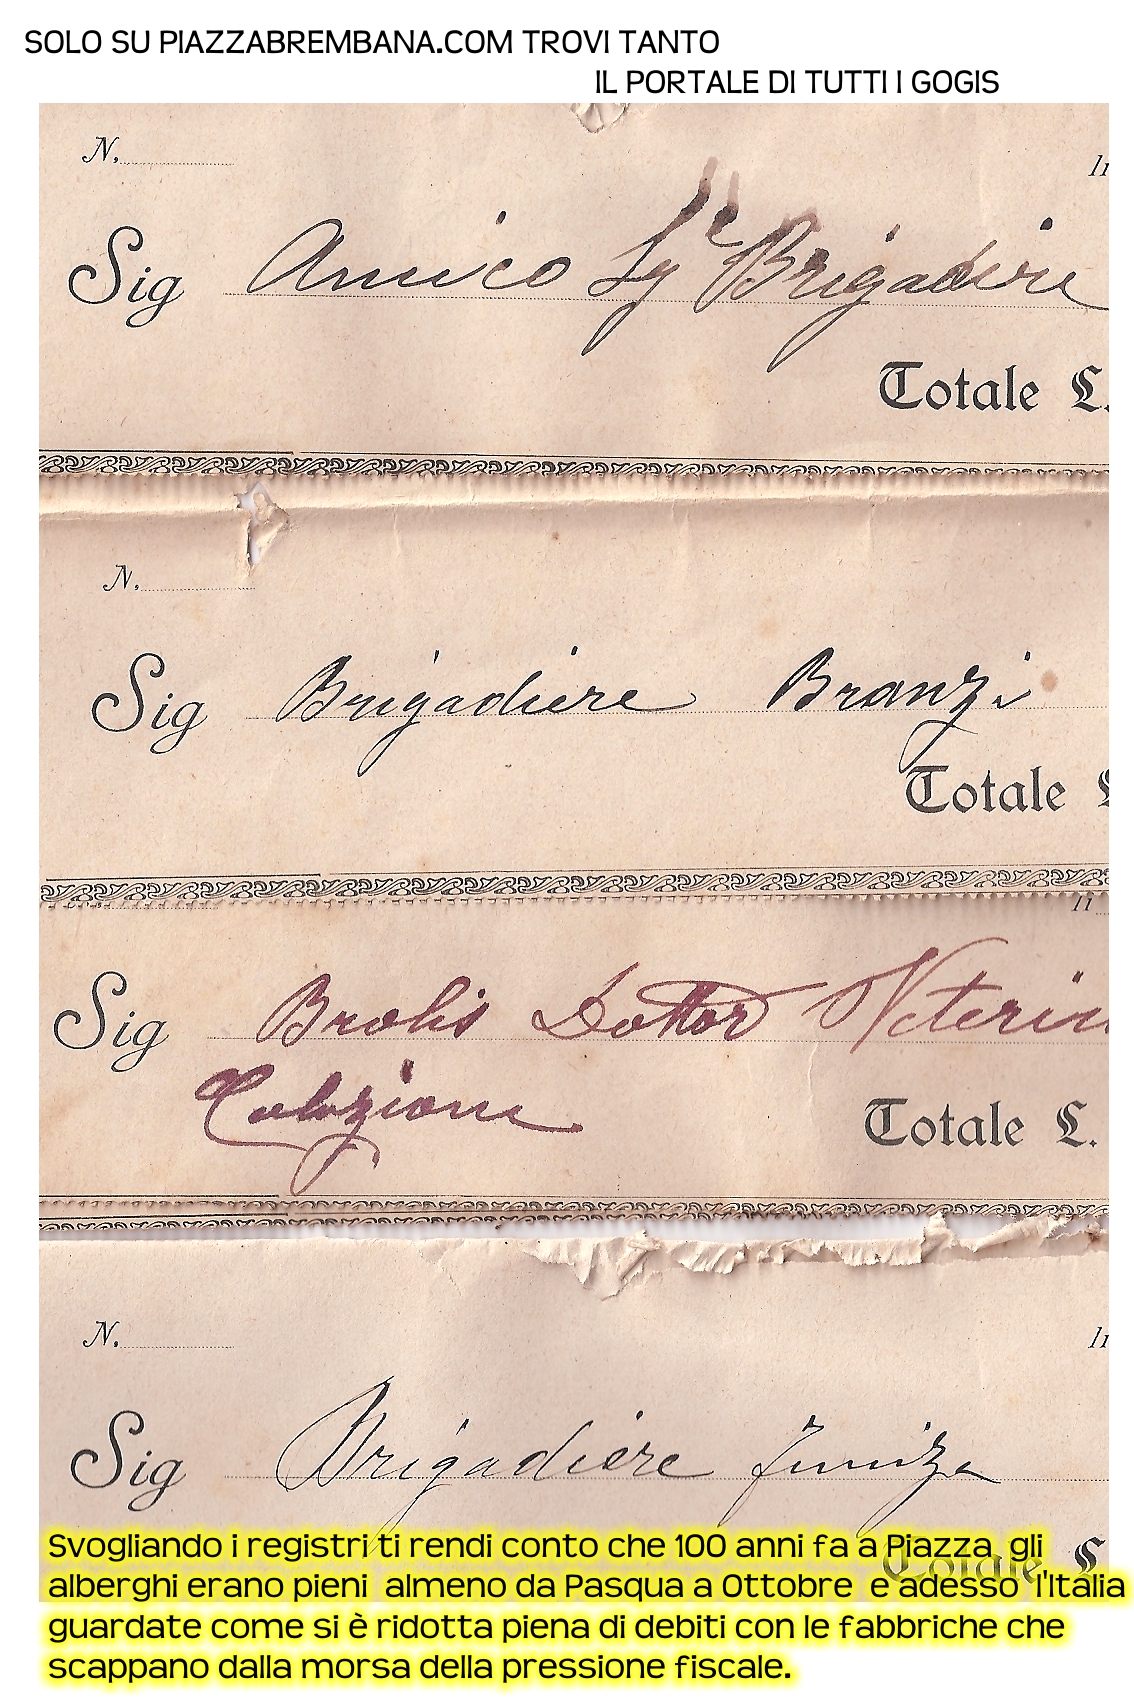 SOLO SU PIAZZABREMBANA.COM TROVI TANTO
IL PORTALE DI TUTTI I GOGIS
N.
Sig Amico Brigadiere
Totale £.
N.
Sig Brigadiere Branzi
Totale
Sig Brolis Dottor
Colazione
Totale £.
N.
Sig Brigadiere
Totale £
Svogliando i registri ti rendi conto che 100 anni fa a Piazza gli
alberghi erano pieni almeno da Pasqua a Ottobre e adesso l'Italia
guardate come si è ridotta piena di debiti con le fabbriche che
scappano dalla morsa della pressione fiscale.